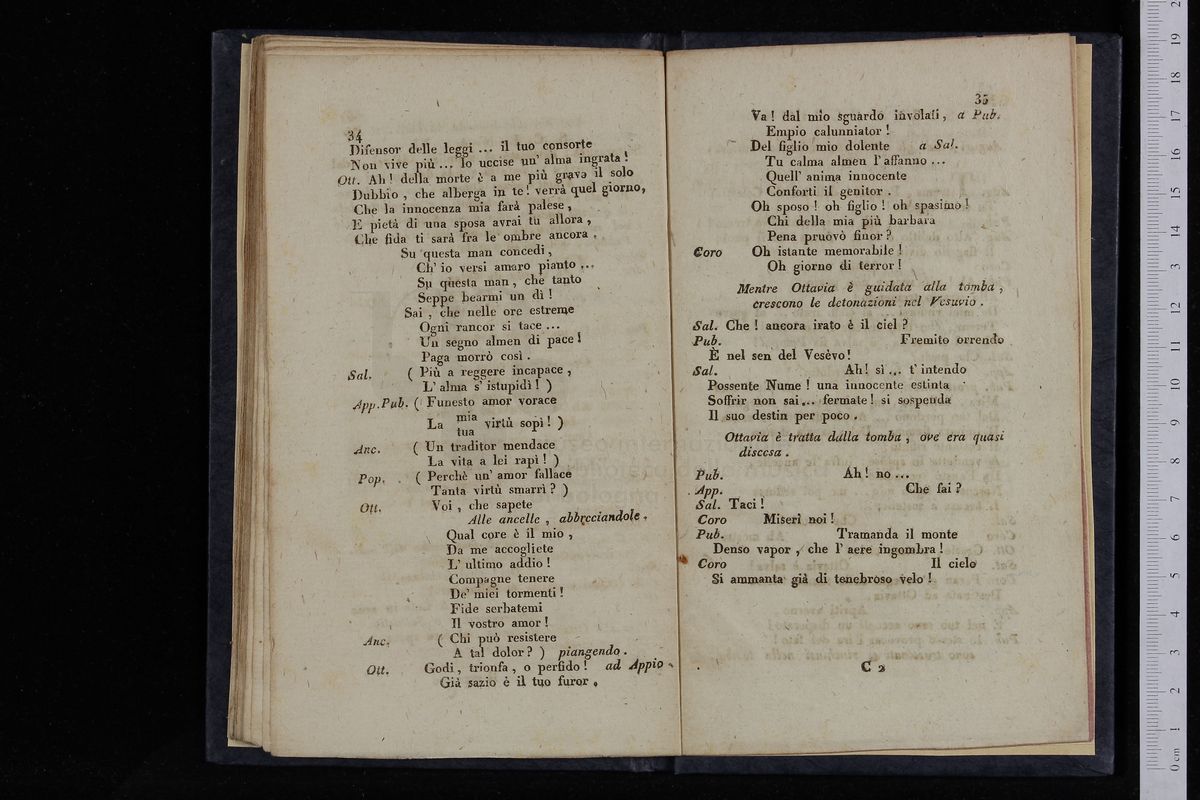 34
Difensor delle leggi ... il tuo consorte
Non vive più ... Io uccise un' alma ingrata !
Ott. Ah ! della morte è a me più grave il solo
Dubbio , che alberga in te ! verrà quel giorno,
Che la innocenza mia farà palese ,
E pietà di una sposa avrai tu allora ,
Che fida ti sarà fra le ombre ancora .
Su questa man concedi ,
Ch' io versi amaro pianto ...
Su questa man , che tanto
Seppe bearmi un dì !
Sai , che nelle ore estreme
Ogni rancor si tace ...
Un segno almen di pace !
Paga morrò così .
Sal. ( Più a reggere incapace ,
L' alma s' istupidì ! )
App.Pub. ( Funesto amor vorace
La mia tua virtù sopì ! )
Anc. ( Un traditor mendace
La vita a lei rapì ! )
Pop. ( Perchè un' amor fallace
Tanta virtù smarrì ? )
Ott. Voi , che sapete
Alle ancelle , abbracciandole .
Qual core è il mio ,
Da me accogliete
L' ultimo addio !
Compagne tenere
De' miei tormenti !
Fide serbatemi
Il vostro amor !
Anc. ( Chi può resistere
A tal dolor ? ) piangendo .
Ott. Godi , trionfa , o perfido ! ad Appio .
Già sazio è il tuo furor .
35
Va ! dal mio sguardo involati , a Pub.
Empio calunniator !
Del figlio mio dolente a Sal.
Tu calma almen l' affanno ...
Quell' anima innocente
Conforti il genitor .
Oh sposo ! oh figlio ! oh spasimo !
Chi della mia più barbara
Pena pruovò finor ?
Coro Oh istante memorabile !
Oh giorno di terror !
Mentre Ottavia è guidata alla tomba ,
crescono le detonazioni nel Vesuvio .
Sal. Che ! ancora irato è il ciel ?
Pub. Fremito orrendo
È nel sen del Vesèvo !
Sal. Ah ! sì ... t' intendo
Possente Nume ! una innocente estinta
Soffrir non sai ... fermate ! si sospenda
Il suo destin per poco .
Ottavia è tratta dalla tomba , ove era quasi
discesa .
Pub. Ah ! no ...
App. Che fai ?
Sal. Taci !
Coro Miseri noi !
Pub. Tramanda il monte
Denso vapor , che l' aere ingombra !
Coro Il cielo
Si ammanta già di tenebroso velo !
C 2